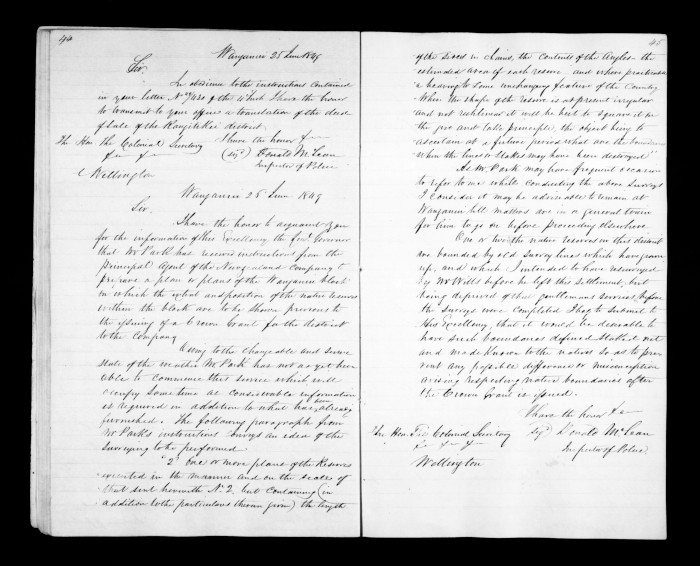 44
Wanganui 25 June 1849
Sir,
In obedience to the instructions contained
in your letter No of the I have the honor
to transmit to your office a translation of the deed
of Sale of the Rangitikei district.
I have the honor &c
The Hon. the Colonial Secretary
(sigd) Donald McLean
&c &c
Inspector of Police
Wellington
Wanganui 25 June 1849
Sir,
I have the honor to acquaint you
for the information of His Excellency the Lieut Governor
that Mr Park has received instructions from the
principal Agent of the New Zealand Company to
prepare a plan or plans of the Wanganui block
in which the extent and position of the native reserves
within the block are to be shewn previous to
the issuing of a Crown Grant for the district
to the Company
Owing to the changeable and severe
state of the weather Mr Park has not as yet been
able to commence this service which will
occupy some time as considerable information
is required in addition to what has been already
furnished. The following paragraph from
Mr Park's instructions conveys an idea of the
Surveying to be performed.
"2d One or more plans of the Reserves
executed in the manner and on the scale of
that sent herewith No 2, but containing (in
addition to the particulars therein given) the length
45
of the sides in chains, the contents of the Angles the
estimated area of each reserve, and where practicable
a bearing to some unchanging feature of the Country.
When the shape of the reserve is at present irregular
and not rectilinear it will be best to square it on
the give and take principle, the object being to
ascertain at a future period what are the boundaries
when the lines or stakes may have been destroyed"
As Mr Park may have frequent occasion
to refer to me whilst conducting the above surveys
I consider it may be advisable to remain at
Wanganui till matters are in a general train
for him to go on before proceeding elsewhere.
One or two the native reserves in this district
are bounded by old Survey lines which have grown
up, and which I intended to have resurveyed
by Mr Wills before he left this settlement, but
being deprived of that gentlemans services before
the surveys were completed I beg to submit to
His Excellency, that it would be desirable to
have such boundaries defined, staked out
and made known to the natives so as to prevent
any possible difference or misconception
arising respecting native boundaries after
the Crown Grant is issued.
I have the honor &c
The Hon. The Colonial Secretary
Sigd Donald McLean
&c &c &c
Inspector of Police
Wellington